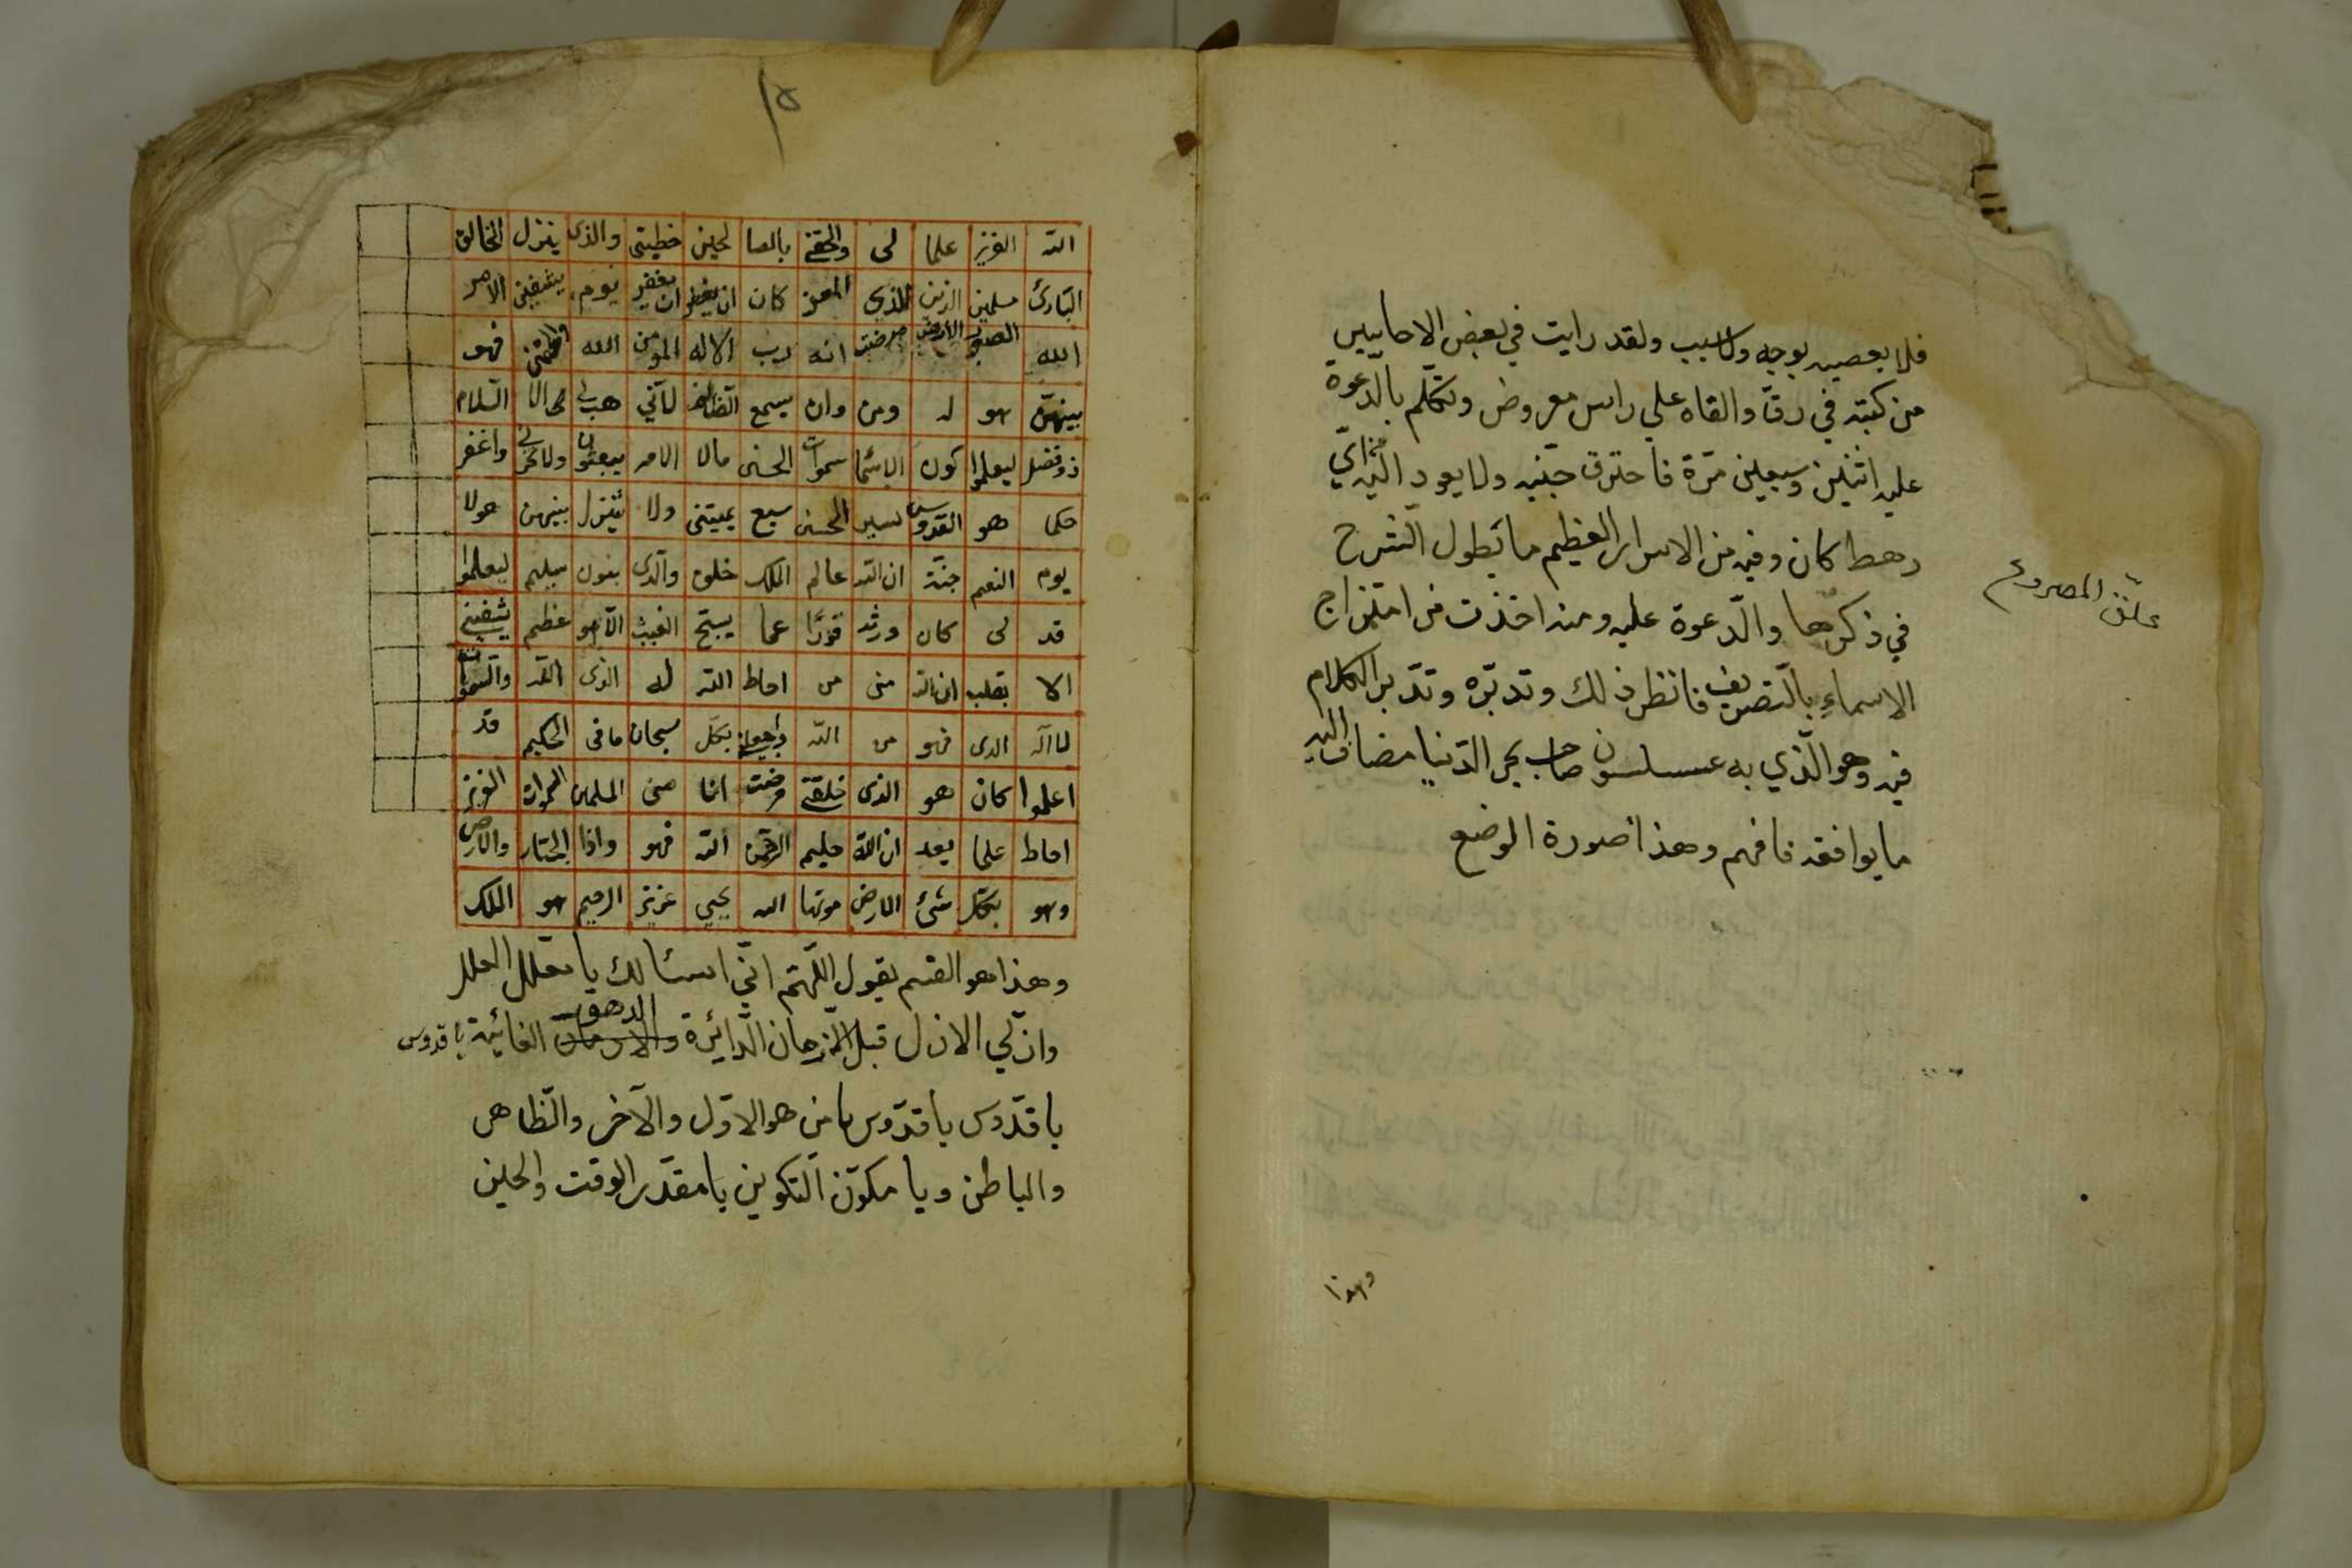 فلا يعصيه بوجه ولا سبب ولقد رايت في بعض الاحايين
من كتبه في رق والقاه علي راس معروض وتكلم بالدعوة
عليه اثنين وسبعين مرة فاحترق جنيه ولا يعود اليه من اي
رهط كان وفيه من الاسرار العظيم ما يطول الشرح
علق المصروع
في ذكرها والدعوة عليه ومنه اخذت من امتزاج
الاسماء بالتصريف فانظر ذلك وتدبره وتدبر الكلام
فيه وهو الذي به عسلسون صاحب بحر الدنيا مضاف اليه
ما يوافقه فافهم وهذا صورة الوضع
وهذا
١٥
الله العزيز علما لى والحقنى بالصا لحين خطيتى والذى ينزل الخالق
البارئ مسلمين الذين الذي المعز كان ان يغفر يوم يشفين الامر
الله الصور الارض مرضت انه رب الا له المومن الله فهو
بينهن هو له ومن وان يسبح لاتي هب لى السلام
ذو فضل ليعلموا كون الاسما سموات الحسنى مالا الامر يبعثون واغفر
حكما هو القدوس الحسنى سبع يميتنى ولا يتنزل بينهن هولا
يوم النعيم جنة ان الله عالم الملك خلق والذى بنون سليم ليعلموا
قد لى كان ورثه عما يسبح الغيب الا هو عظيم يشفين
الا بقلب ان الله منى من احاط الله له الذى الله والسموات
لا اله الذى فهو من الله واجعلنى بكل سبحان ما فى الحكيم قد
اعلموا كان هو الذى خلقنى مرضت انا العزيز
احاط علما بعد ان الله حليم الرحمن الله فهو واذا الجبار والارض
وهو بكل شئ الارض موتها الله يحيي عزيز الرحيم هو الملك
وهذا هو القسم يقول اللهم اني اسئالك يا معلل العلل
وازلي الازل قبل الازمان الدائرة والدهور الفائية يا قدوس
يا قدوس يا قدوس يا من هو الاول والآخر والظاهر
والباطن ويا مكون التكوين يا مقدر الوقت والحين